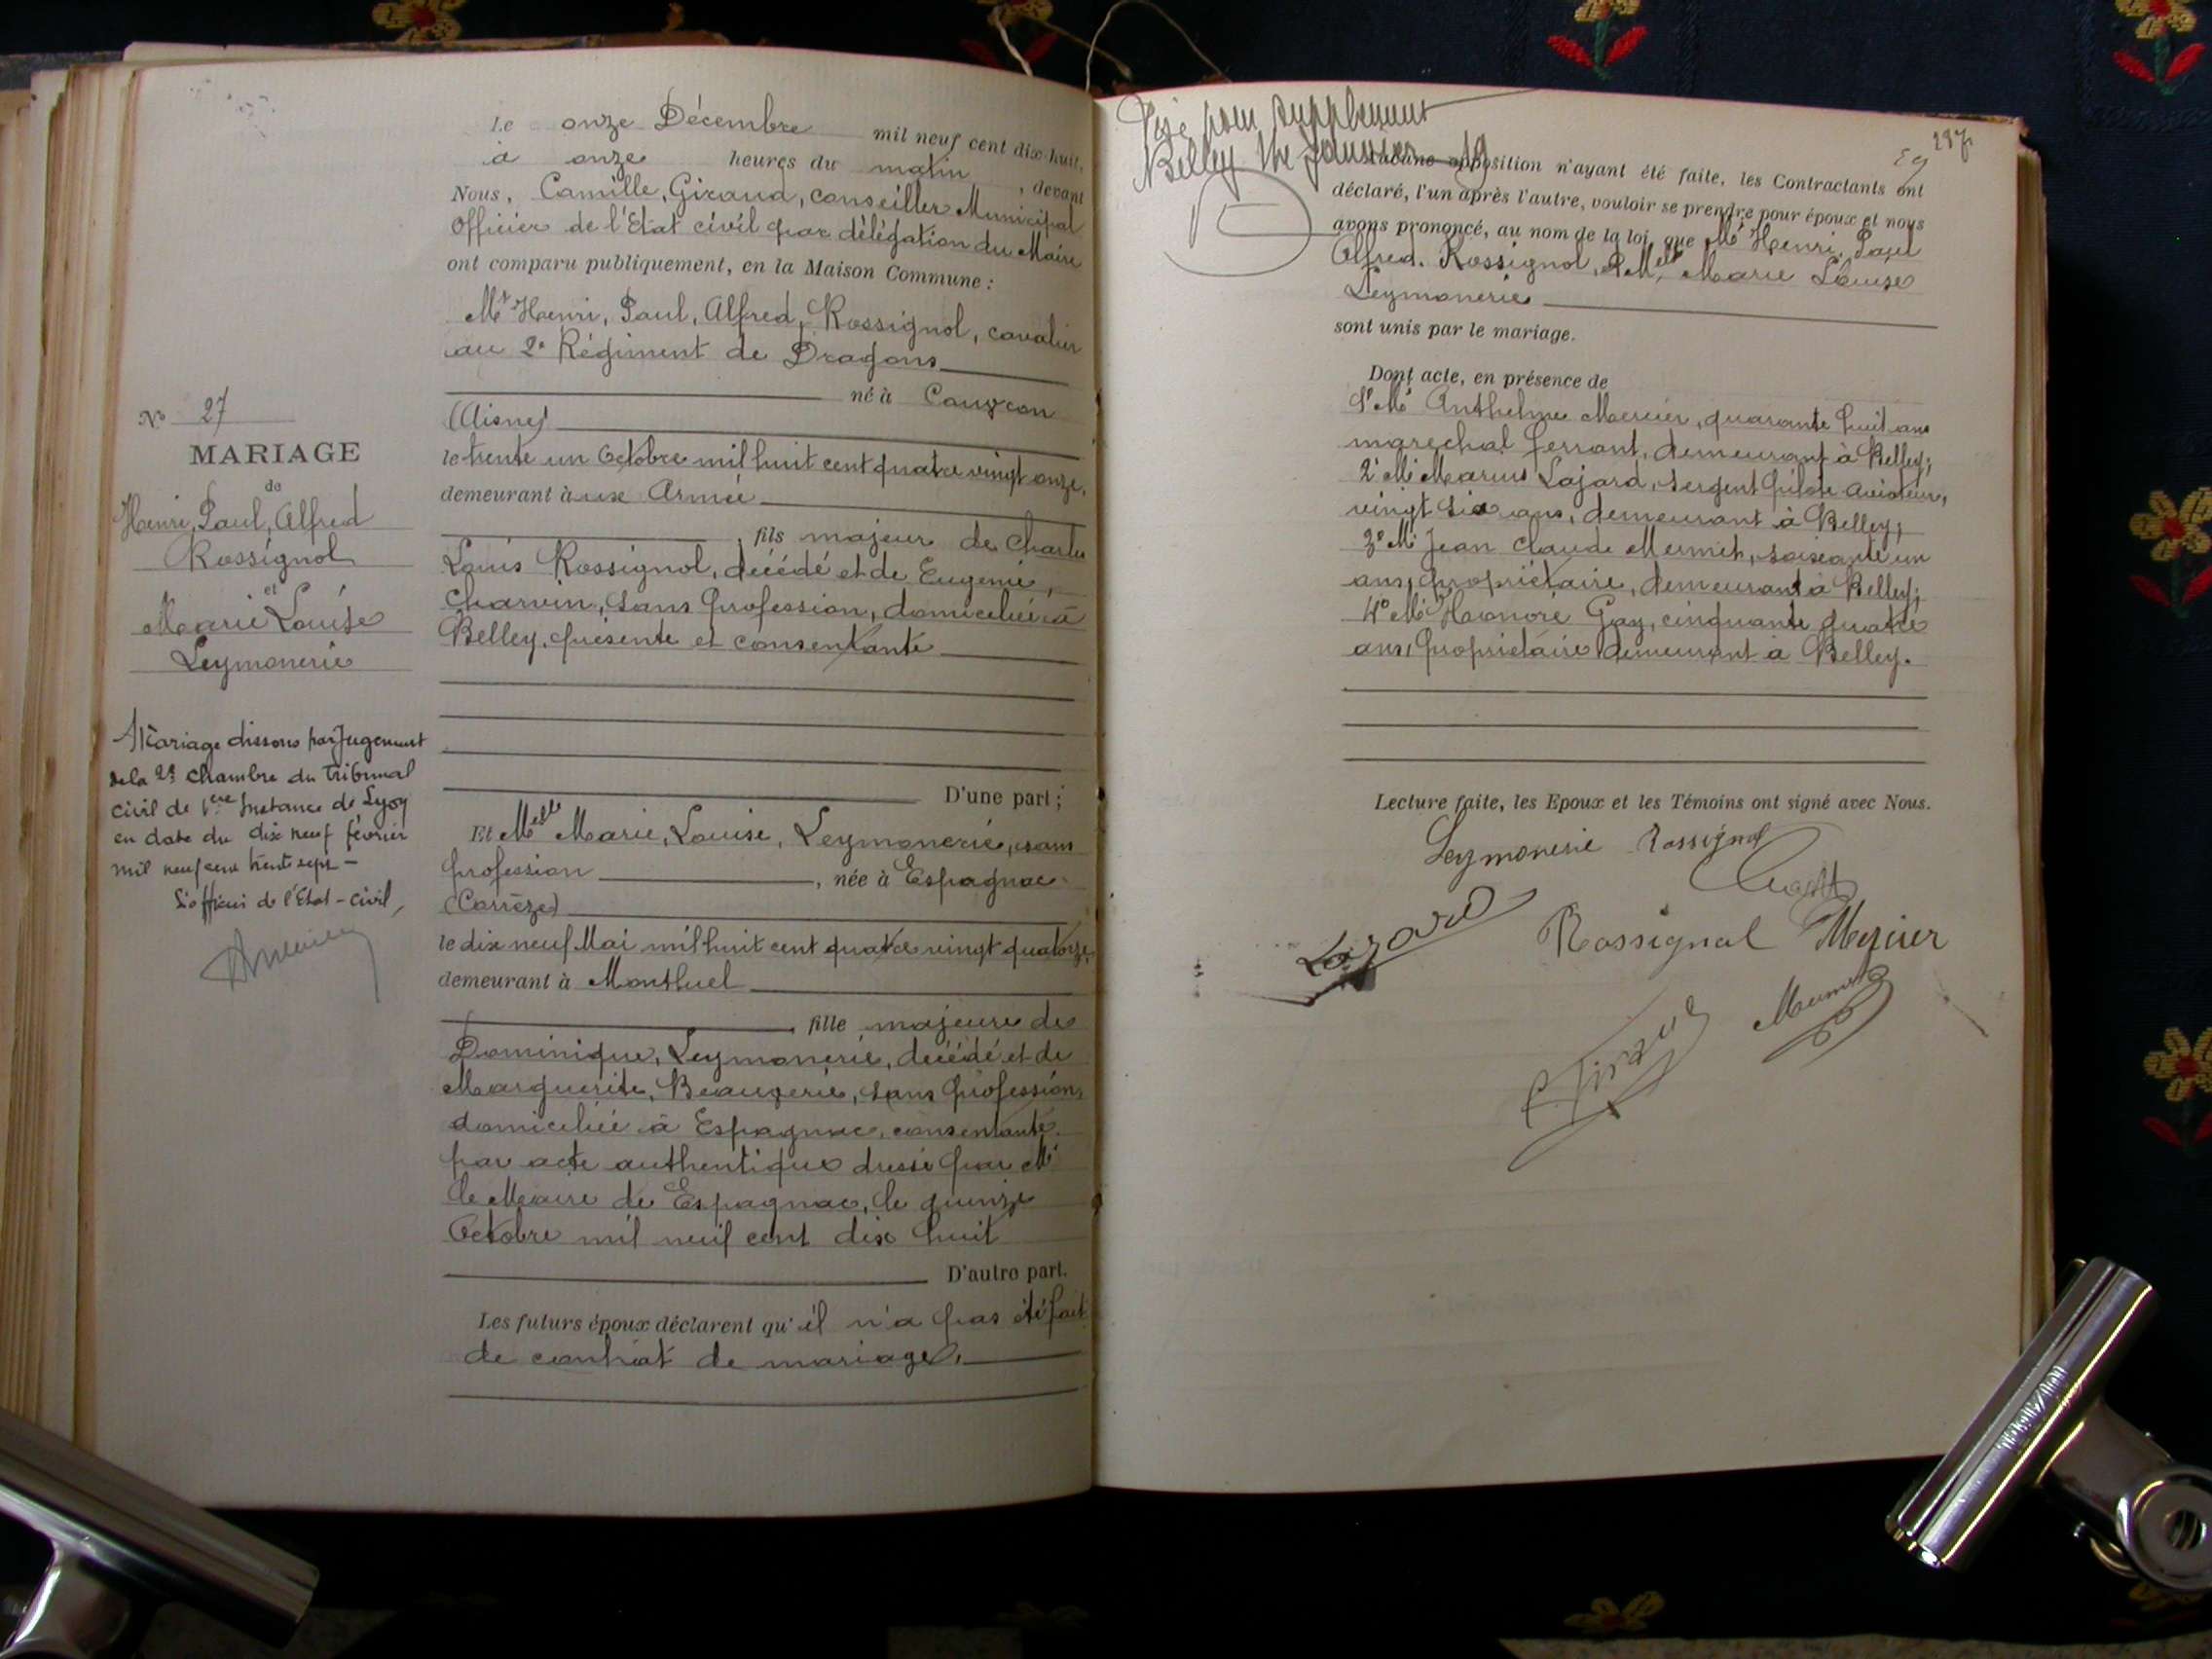 Le onze Décembre mil neuf cent dix-huit,
à onze heures du matin, devant
Nous, Camille, Giraud, conseiller Municipal
Officier de l'Etat civil par délégation du Maire
ont comparu publiquement, en la Maison Commune :
Mr Henri, Paul, Alfred, Rossignol, cavalier
au 2e Régiment de Dragons
né à
(Aisne)
le trente un Octobre mil huit cent quatre vingt onze,
demeurant à aux Armée
, fils majeur de Charles
Louis Rossignol, décédé et de Eugenie,
Charvin, sans profession, domiciliée à
Belley, présente et consentante
D'une part ;
Et Melle Marie, Louise, Leymonerie, sans
profession, née à Espagnac
(Corrèze)
le dix neuf Mai mil huit cent quatre vingt quatorze,
demeurant à Montluel
, fille majeure de
Dominique, Leymonerie, décédé et de
Marguerite, Beaugerie, sans profession,
domiciliée à Espagnac, consentante
par acte authentique dressé par Mr
le Maire de Espagnac, le quinze
Octobre mil neuf cent dix huit
D'autre part.
Les futurs époux déclarent qu'il n'a pas été fait
de contrat de mariage.
No 27
MARIAGE
de
Henri, Paul, Alfred
Rossignol
et
Marie Louise
Leymonerie
Mariage dissous par Jugement
de la 2e chambre du Tribunal
Civil de 1ère Instance de Lyon
en date du dix neuf février
mil neuf cent trente sept -
L'officier de l'Etat-civil,
Visé pour supplement
Belley le Janvier 19
287
59
Aucune opposition n'ayant été faite, les Contractants ont
déclaré, l'un après l'autre, vouloir se prendre pour époux et nous
avons prononcé, au nom de la loi, que Mr Henri, Paul
Alfred, Rossignol, & Melle, Marie Louise
Leymonerie
sont unis par le mariage.
Dont acte, en présence de
1° Mr Anthelme Mercier, quarante huit ans
marechal ferrant, demeurant à Belley;
2° Mr Marius Lajard, sergent pilote aviateur,
vingt six ans, demeurant à Belley;
3° Mr Jean Claude Mermet, soixante un
ans, propriétaire, demeurant à Belley;
4° Mr Honoré Gay, cinquante quatre
ans, propriétaire demeurant à Belley.
Lecture faite, les Epoux et les Témoins ont signé avec Nous.
Leymonerie Rossignol
Rossignol Mercier
C Giraud